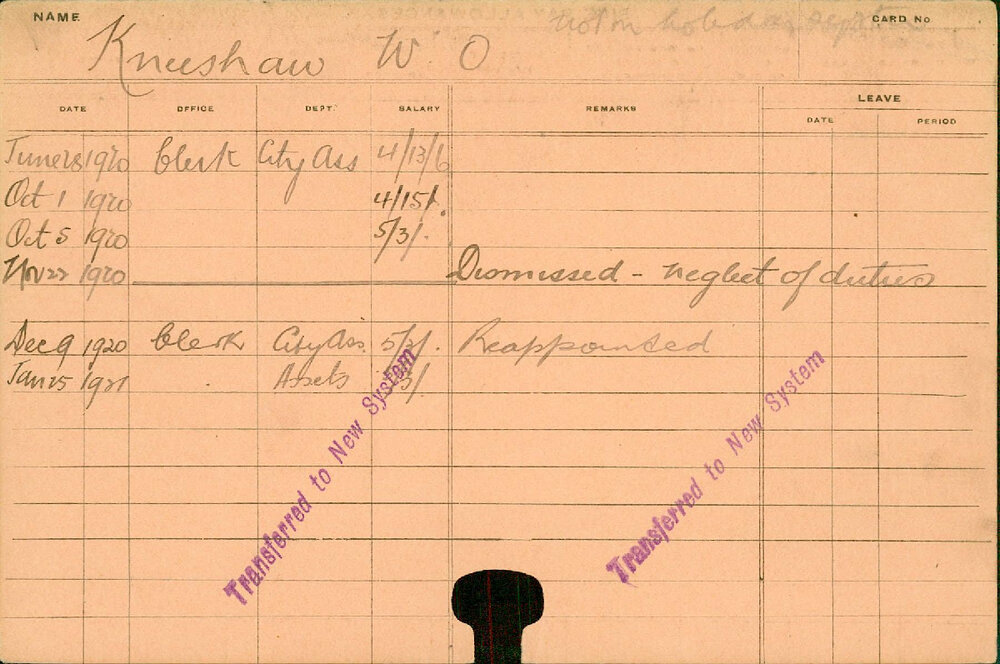 NAME CARD No
Kneeshaw W O
DATE OFFICE DEPT. SALARY REMARKS LEAVE
DATE PERIOD
June 28 1920 Clerk City Ass 4/13/6
Oct 1 1920 4/15/.
Oct 5 1920 5/3/.
Nov 22 1920 Dismissed - neglect of duties
Dec 9 1920 Clerk City Ass. 5/3/. Reappointed
Jan 25 1921 Assets 5/3/.
Transferred to New System
Transferred to New System